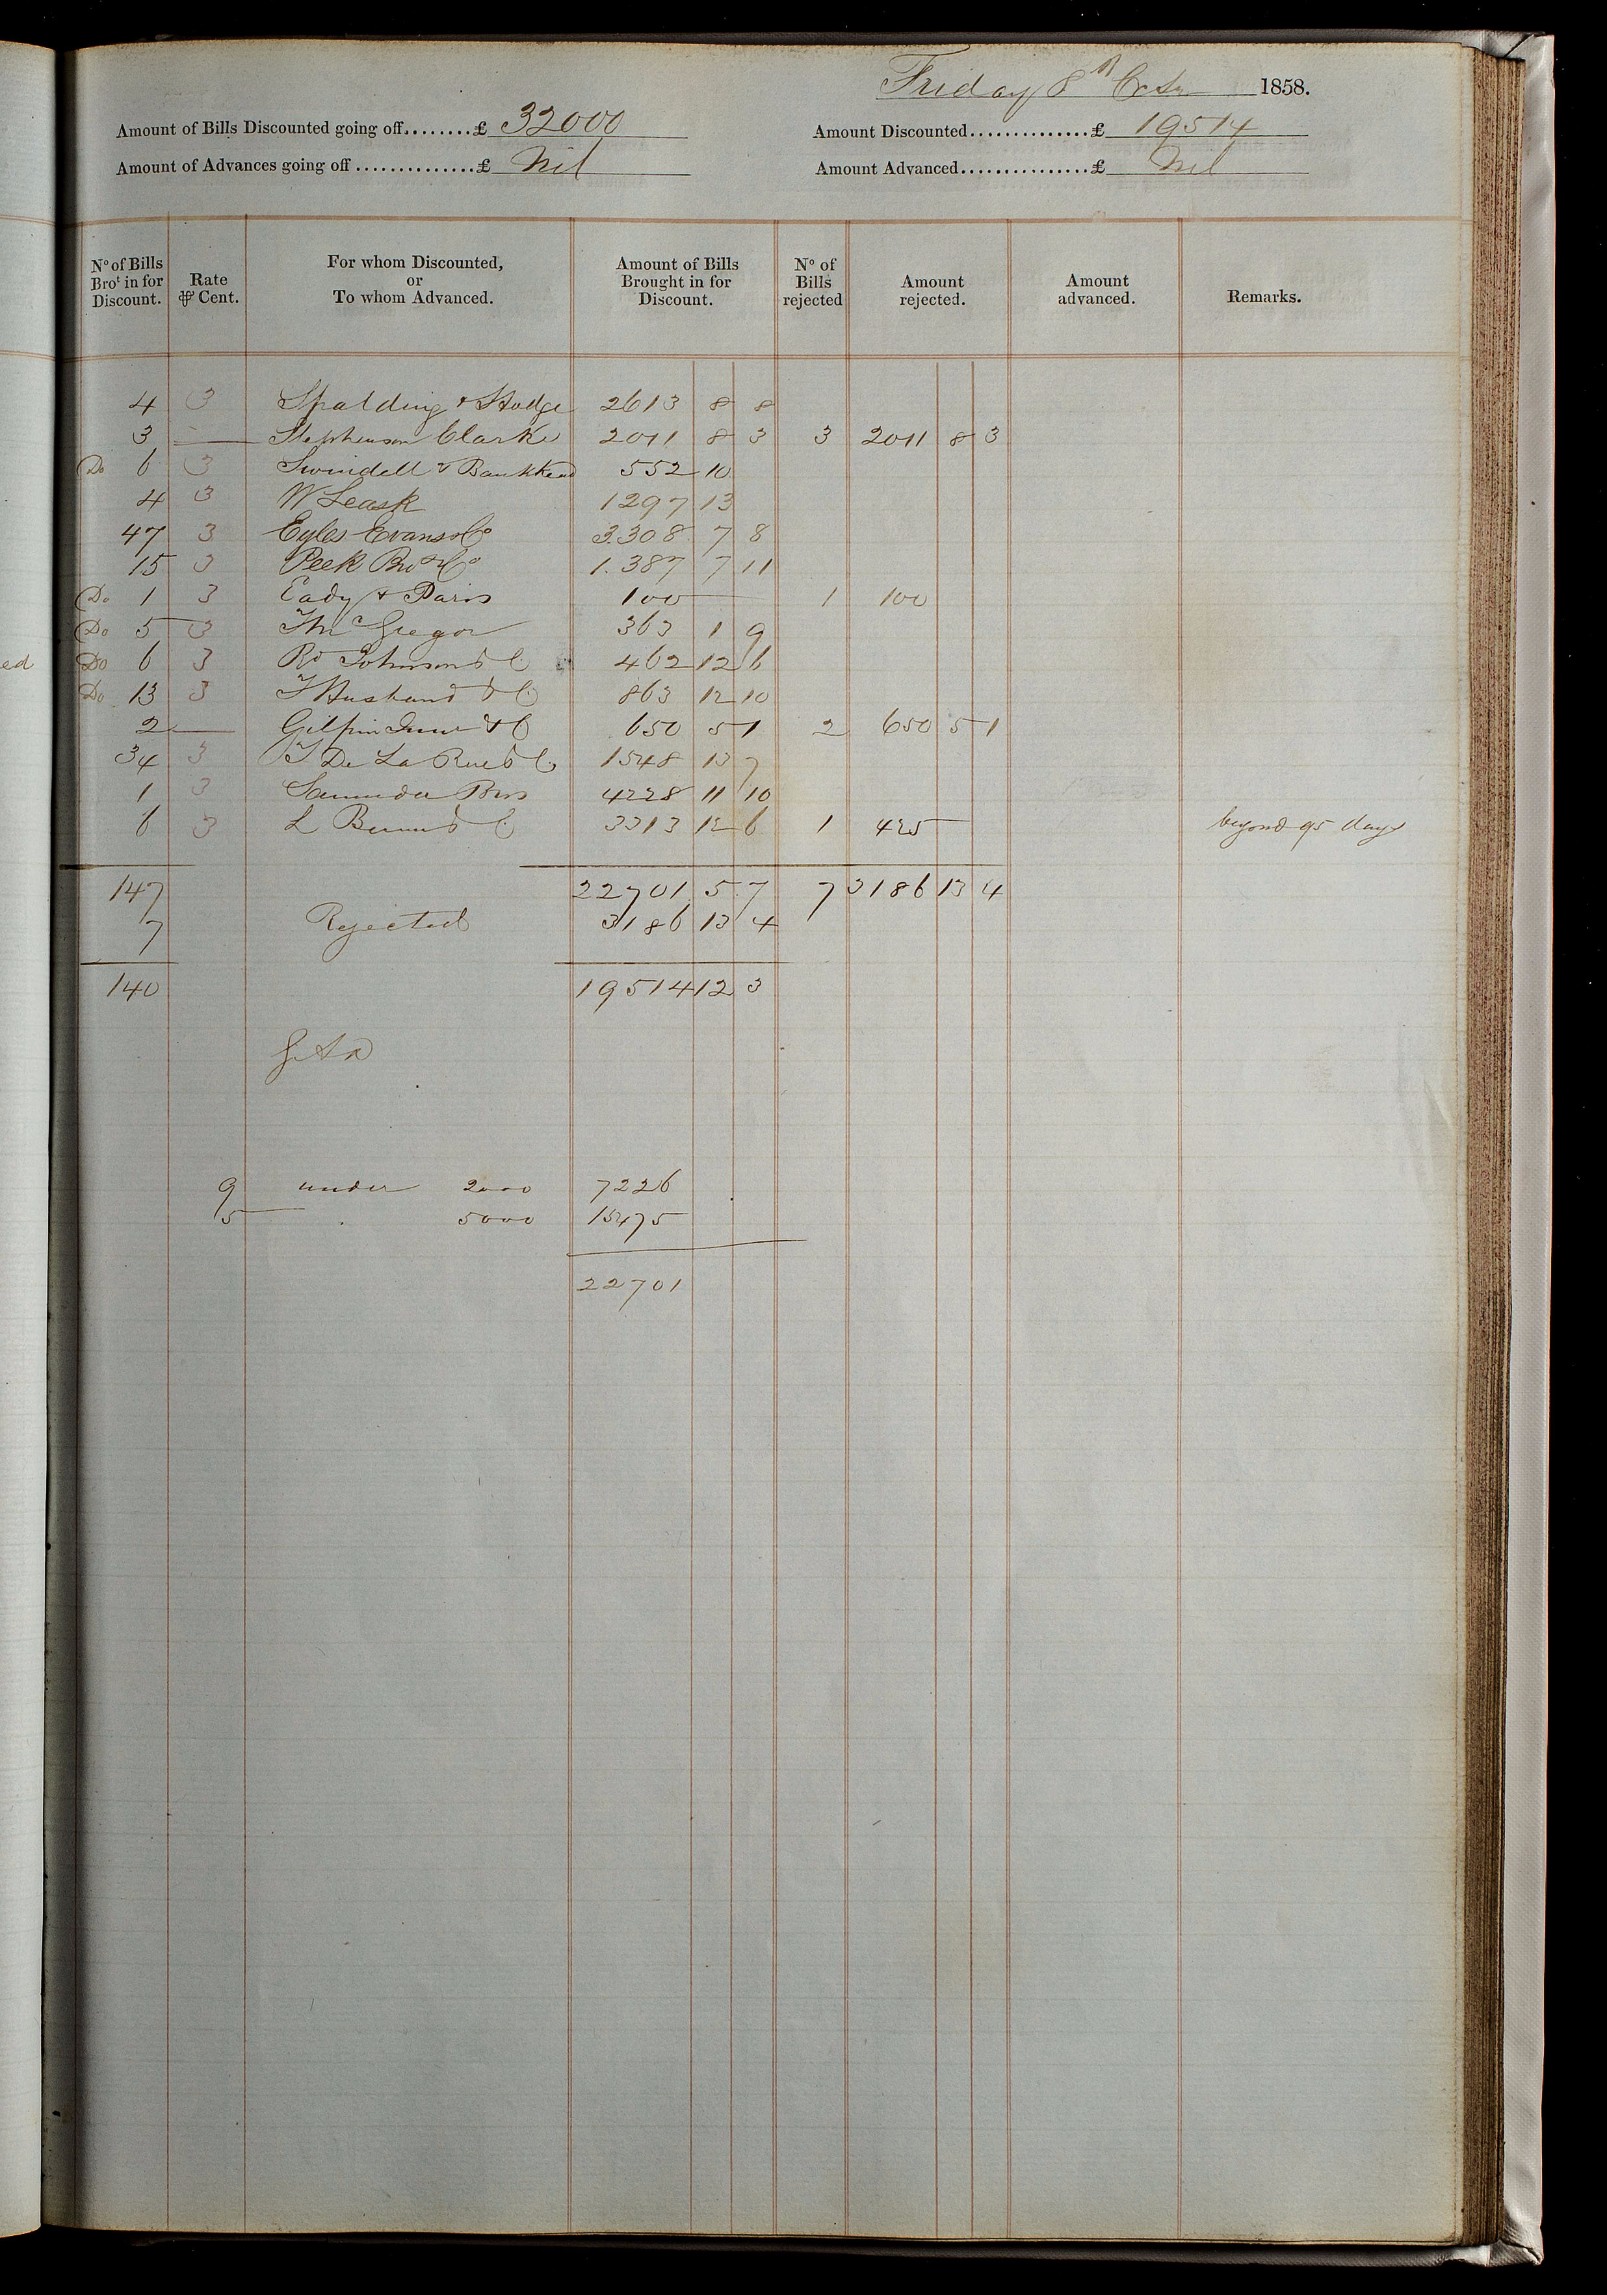 Friday 8th Octr 1858.
Amount of Bills Discounted going off........£ 32000 Amount Discounted..............£ 19514
Amount of Advances going off..............£ Nil Amount Advanced...............£ Nil
No of Bills Brot in for Discount. Rate ⅌ Cent. For whom Discounted, or To whom Advanced. Amount of Bills Brought in for Discount. No of Bills rejected Amount rejected. Amount advanced. Remarks.
4 3 Spalding & Hodge 2613 8 8
3 — Stephenson Clarke 2011 8 3 3 2011 8 3
Do 6 3 Swindell & Bankhead 552 10
4 3 W Leask 1297 13
47 3 Eyles Evans & Co 3.308 7 8
15 3 Peek Bros & Co 1.387 7 11
Do 1 3 Eady & Paris 100 — 1 100
Do 5 3 Gregor 363 1 9
ed Do 6 3 Rd Johnson & C 462 12 6
Do 13 3 T Husband & C 863 12 10
2 — Gilpin & C 650 5 1 2 650 5 1
34 3 T De La Rue & C 1548 13 7
1 3 Saunders Bros 4228 11 10
6 3 L & C 3313 12 6 1 425 — beyond 95 days
147 22701 5 7 7 3186 13 4
7 Rejected 3186 13 4
140 19514 12 3
9 under 2000 7226
5 . 5000 15475
22701